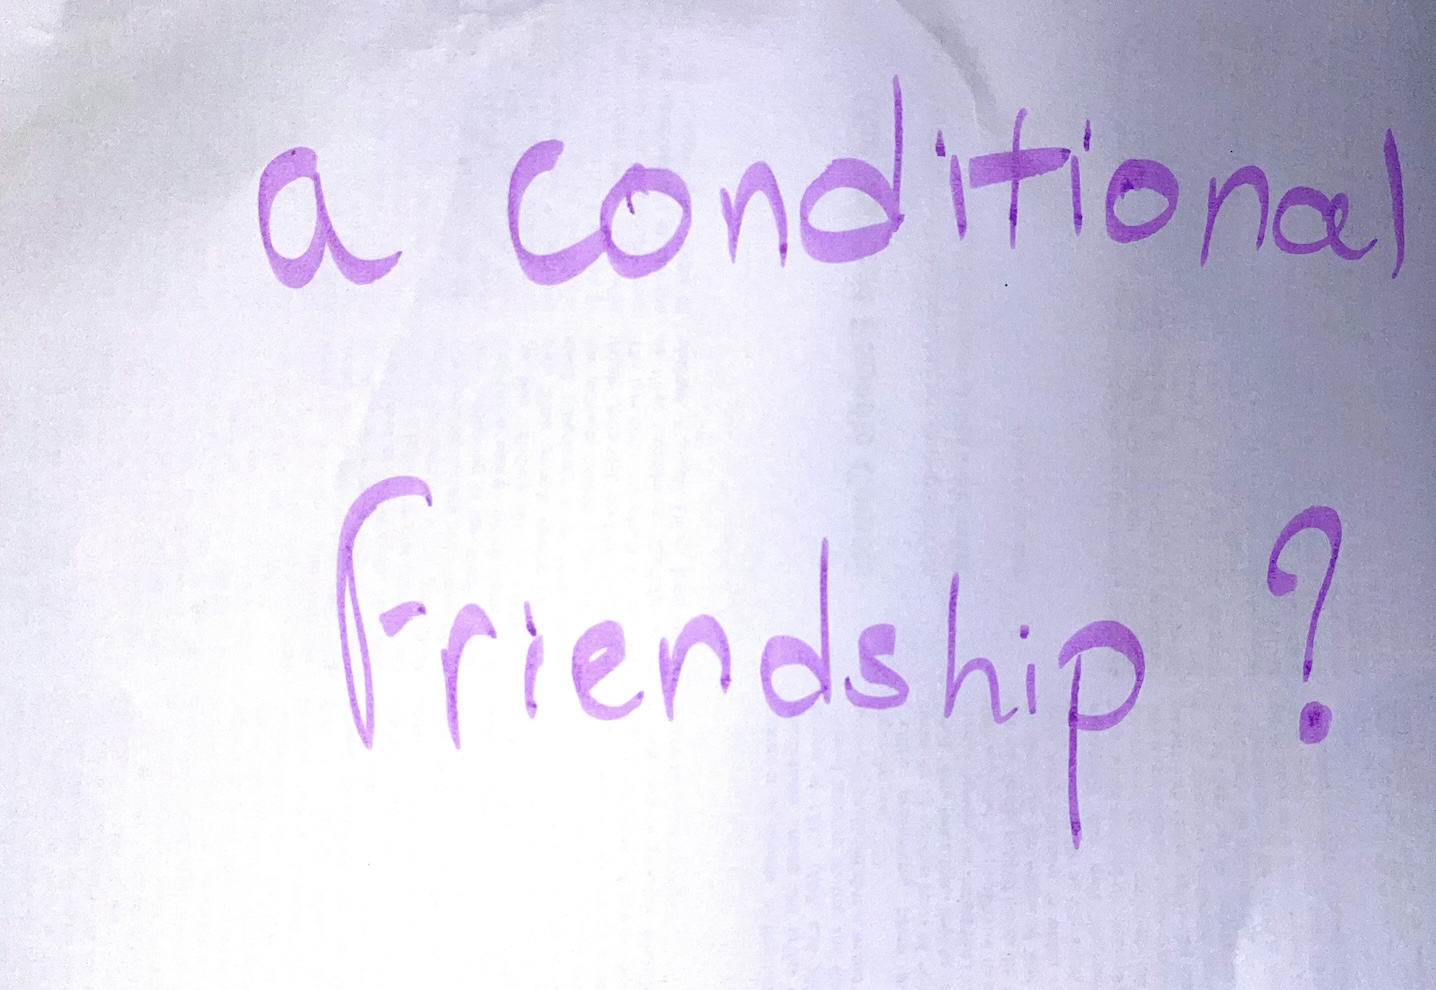 a conditional
friendship ?